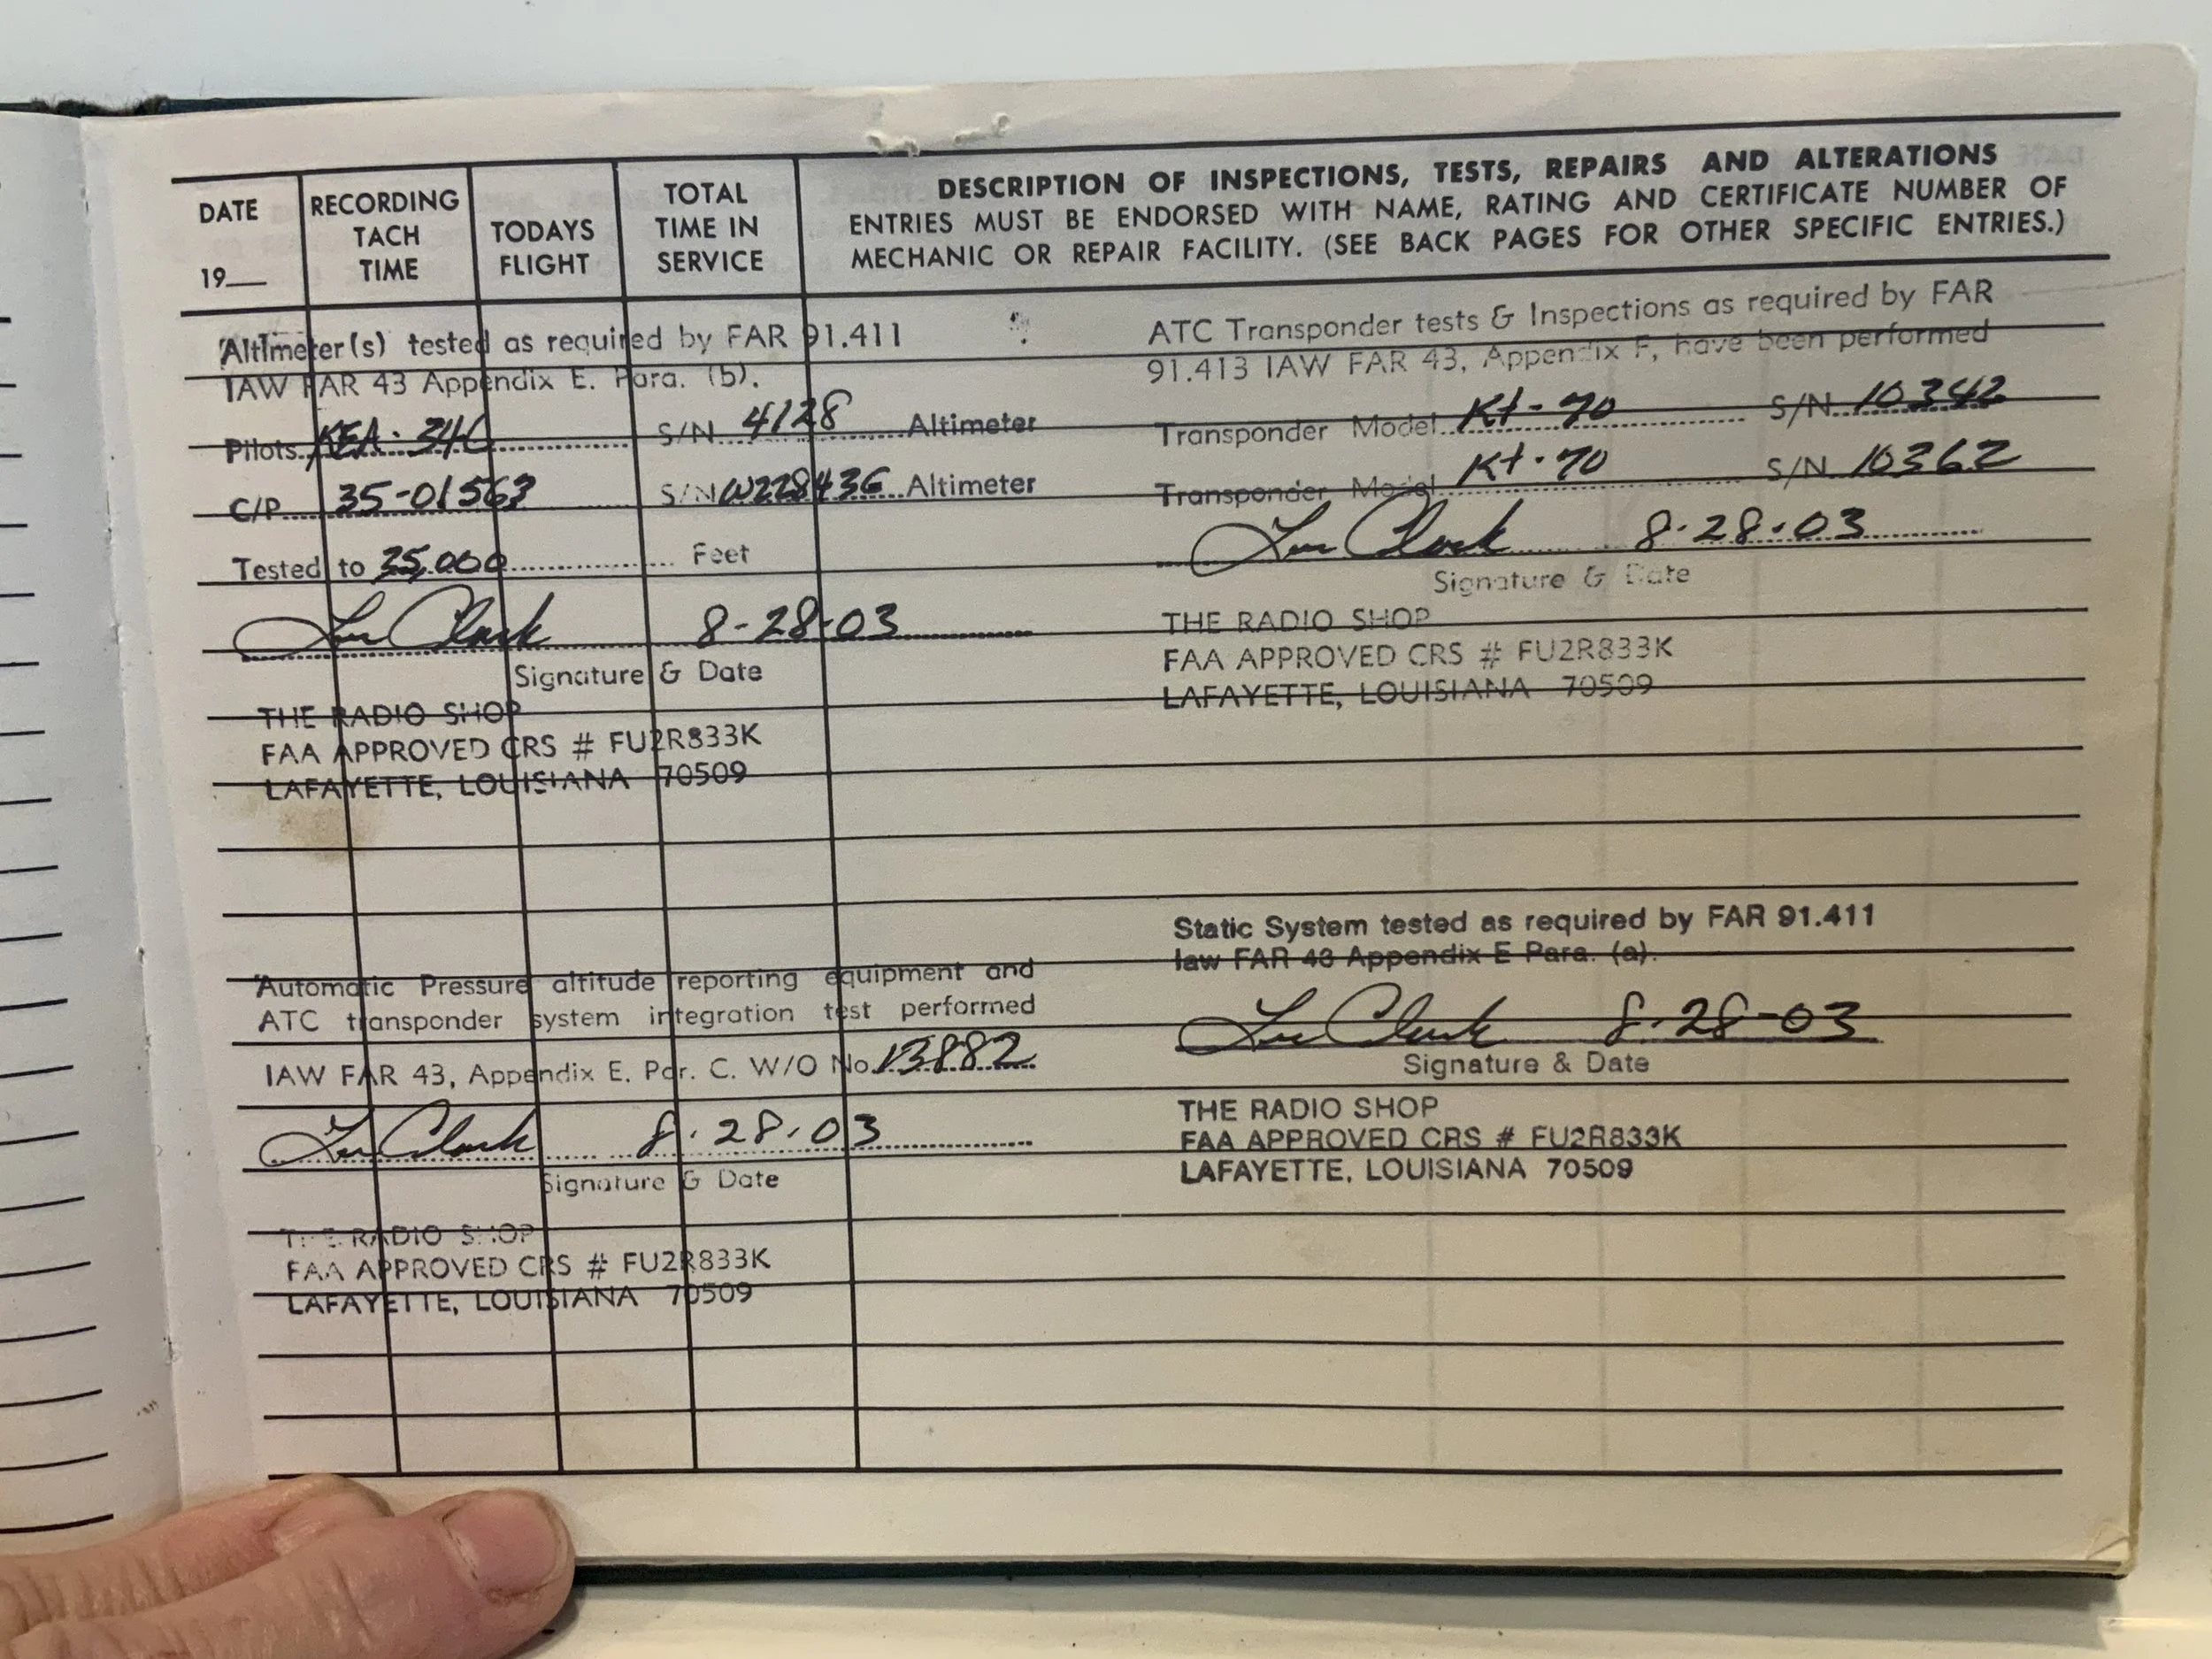 DATE
19__
RECORDING
TACH
TIME
TODAYS
FLIGHT
TOTAL
TIME IN
SERVICE
DESCRIPTION OF INSPECTIONS, TESTS, REPAIRS AND ALTERATIONS
ENTRIES MUST BE ENDORSED WITH NAME, RATING AND CERTIFICATE NUMBER OF
MECHANIC OR REPAIR FACILITY. (SEE BACK PAGES FOR OTHER SPECIFIC ENTRIES.)
Altimeter(s) tested as required by FAR 91.411
IAW FAR 43 Appendix E. Para. (b).
Pilots KEA-346 S/N 4128 Altimeter
C/P 35-01563 S/N W22843G Altimeter
Tested to 35,000 Feet
Clark 8-28-03
Signature & Date
THE RADIO SHOP
FAA APPROVED CRS # FU2R833K
LAFAYETTE, LOUISIANA 70509
ATC Transponder tests & Inspections as required by FAR
91.413 IAW FAR 43, Appendix F, have been performed
Transponder Model Kt-70 S/N 10342
Transponder Model Kt-70 S/N 10362
Clark 8-28-03
Signature & Date
THE RADIO SHOP
FAA APPROVED CRS # FU2R833K
LAFAYETTE, LOUISIANA 70509
Automatic Pressure altitude reporting equipment and
ATC transponder system integration test performed
IAW FAR 43, Appendix E. Par. C. W/O No. 13882
Clark 8-28-03
Signature & Date
THE RADIO SHOP
FAA APPROVED CRS # FU2R833K
LAFAYETTE, LOUISIANA 70509
Static System tested as required by FAR 91.411
law FAR 43 Appendix E Para. (a).
Clark 8-28-03
Signature & Date
THE RADIO SHOP
FAA APPROVED CRS # FU2R833K
LAFAYETTE, LOUISIANA 70509